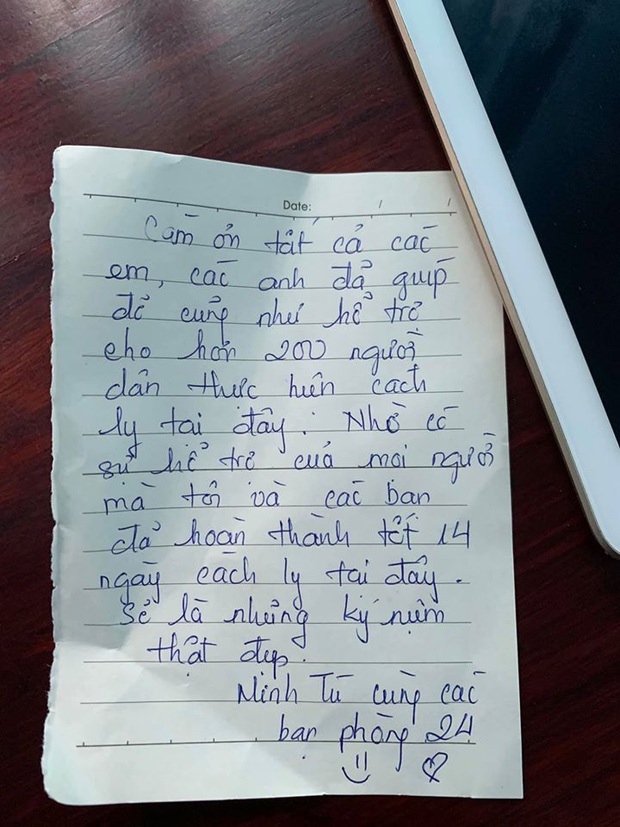 Date: / /
Cảm ơn tất cả các
em, các anh đả giúp
đở củng như hổ trợ
cho hơn 200 người
dân thực hiện cách
ly tại đây. Nhờ có
sự hổ trợ của mọi người
mà tôi và các bạn
đả hoàn thành tốt 14
ngày cách ly tại đây.
Sẻ là những kỷ niệm
thật đẹp.
Minh Tú cùng các
bạn phòng 24